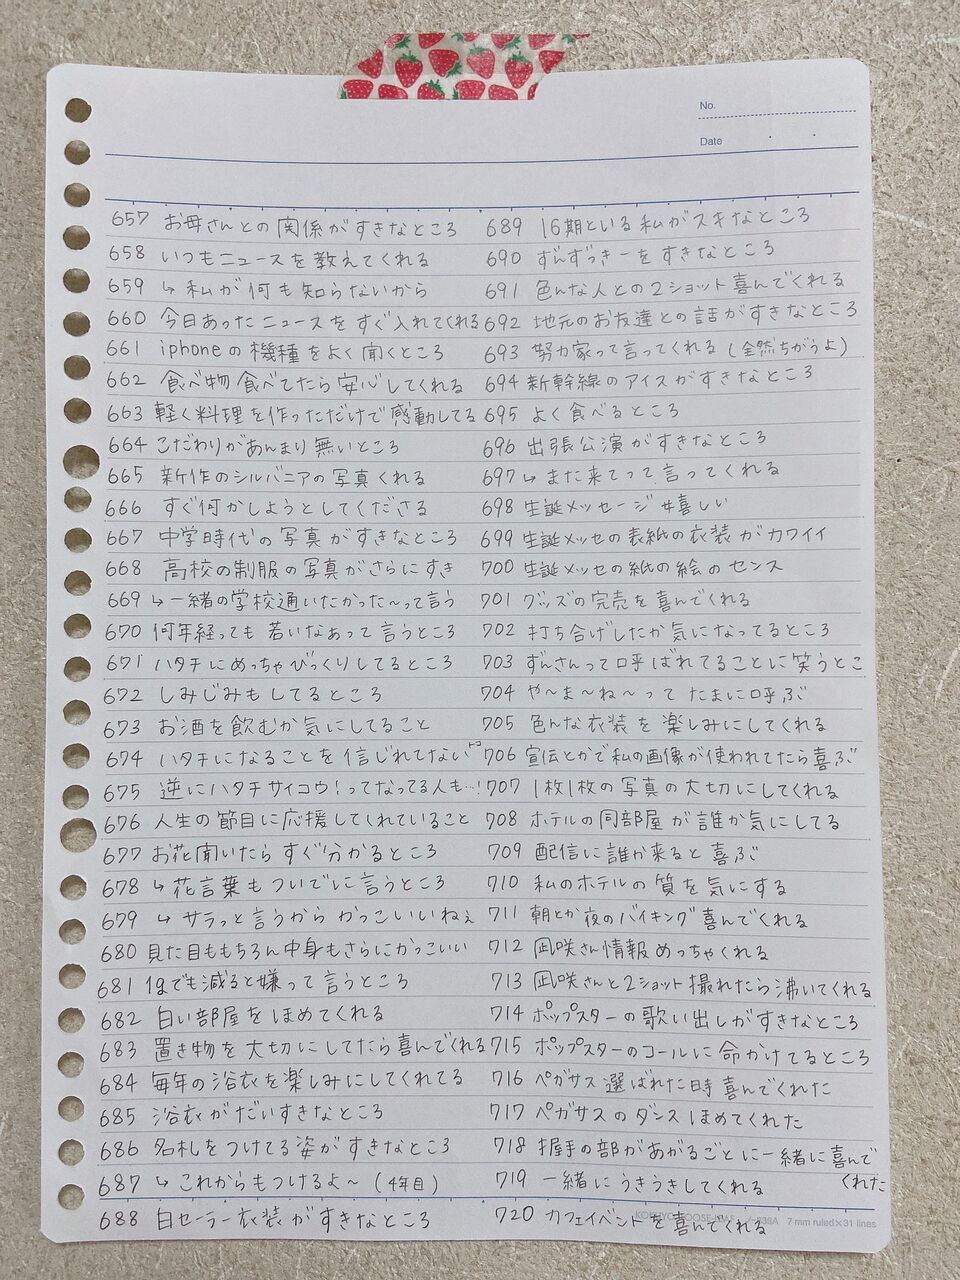 No.
Date
657 お母さんとの関係がすきなところ
658 いつもニュースを教えてくれる
659 ↳ 私が何も知らないから
660 今日あったニュースをすぐ入れてくれる
661 iphoneの機種をよく聞くところ
662 食べ物食べてたら安心してくれる
663 軽く料理を作っただけで感動してる
664 こだわりがあんまり無いところ
665 新作のシルバニアの写真くれる
666 すぐ何かしようとしてくださる
667 中学時代の写真がすきなところ
668 高校の制服の写真がさらにすき
669 ↳ 一緒の学校通いたかった〜って言う
670 何年経っても若いなぁって言うところ
671 ハタチにめっちゃびっくりしてるところ
672 しみじみもしてるところ
673 お酒を飲むか気にしてること
674 ハタチになることを信じれてないトコ
675 逆にハタチサイコウ!ってなってる人も…!
676 人生の節目に応援してくれていること
677 お花聞いたらすぐ分かるところ
678 ↳ 花言葉もついでに言うところ
679 ↳ サラッと言うからかっこいいねぇ
680 見た目ももちろん中身もさらにかっこいい
681 1gでも減ると嫌って言うところ
682 白い部屋をほめてくれる
683 置き物を大切にしてたら喜んでくれる
684 毎年の浴衣を楽しみにしてくれてる
685 浴衣がだいすきなところ
686 名札をつけてる姿がすきなところ
687 ↳ これからもつけるよ〜(4年目)
688 白セーラー衣装がすきなところ
689 16期といる私がスキなところ
690 ずんずっきーをすきなところ
691 色んな人との2ショット喜んでくれる
692 地元のお友達との話がすきなところ
693 努力家って言ってくれる(全然ちがうよ)
694 新幹線のアイスがすきなところ
695 よく食べるところ
696 出張公演がすきなところ
697 ↳ また来てって言ってくれる
698 生誕メッセージ#嬉しい
699 生誕メッセの表紙の衣装がカワイイ
700 生誕メッセの紙の絵のセンス
701 グッズの完売を喜んでくれる
702 打ち合げしたか気になってるところ
703 ずんさんって呼ばれてることに笑うとこ
704 や〜ま〜ね〜ってたまに呼ぶ
705 色んな衣装を楽しみにしてくれる
706 宣伝とかで私の画像が使われてたら喜ぶ
707 1枚1枚の写真の大切にしてくれる
708 ホテルの同部屋が誰か気にしてる
709 配信に誰か来ると喜ぶ
710 私のホテルの質を気にする
711 朝とか夜のバイキング喜んでくれる
712 凪咲さん情報めっちゃくれる
713 凪咲さんと2ショット撮れたら沸いてくれる
714 ポップスターの歌い出しがすきなところ
715 ポップスターのコールに命かけてるところ
716 ペガサス選ばれた時喜んでくれた
717 ペガサスのダンスほめてくれた
718 握手の部があがるごとに一緒に喜んで
くれた
719 一緒にうきうきしてくれる
720 カフェイベントを喜んでくれる
7 mm ruled×31 lines